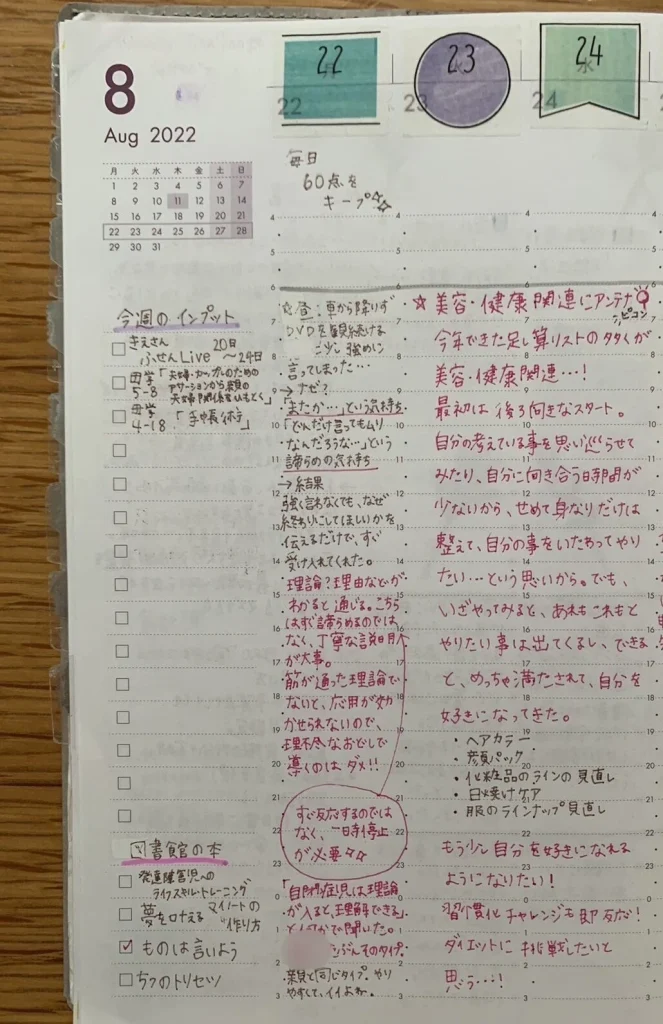 8
Aug 2022
月 火 水 木 金 土 日
1 2 3 4 5 6 7
8 9 10 11 12 13 14
15 16 17 18 19 20 21
22 23 24 25 26 27 28
29 30 31
今週のインプット
きえさん 20日
ふせんLive ～24日
母学「夫婦・カップルのための
5-8 アサーションから親の
夫婦関係をひもとく」
母学
4-18.「手帳術」
図書館の本
発達障害児への
ライフスキル・トレーニング
夢を叶える マイノートの
作り方
ものは言いよう
ちつのトリセツ
22
22
毎日
60点を
キープ☆☆
☆昼:車から降りず
DVDを観続ける
に少し強めに
言ってしまった…
→ナゼ?
「またか…」という気持ち
「どんだけ言ってもムリ
なんだろうな…」という
諦めの気持ち
→結果
強く言わなくても、なぜ
終わりにしてほしいかを
伝えるだけで、すぐ
受け入れてくれた。
理論?理由などが
わかると通じる。こちら
はすぐ諦らめるのでは
なく、丁寧な説明
が大事。
筋が通った理論で
ないと、応用が効
かせられないので、
理不尽なおどしで
導くのはダメ!!
すぐ反応するのでは
なく、一時停止
が必要☆☆
「自閉症児は理論
が入ると、理解できる」
と何かで聞いた。
のタイプ。
親と同じタイプ。やり
やすくて、イイよね。
23
23
☆美容・健康関連にアンテナ
ピコン
今年できた足し算リストの多くが
美容・健康関連…!
最初は後ろ向きなスタート。
自分の考えている事を思い巡らせて
みたり、自分に向き合う時間が
少ないから、せめて身なりだけは
整えて、自分の事をいたわってやり
たい…という思いから。でも、
いざやってみると、あれもこれもと
やりたい事は出てくるし、できる
と、めっちゃ満たされて、自分を
好きになってきた。
・ヘアカラー
・顔パック
・化粧品のラインの見直し
・日焼けケア
・服のラインナップ見直し
もう少し自分を好きになれる
ようになりたい!
習慣化チャレンジも即反応!
ダイエットに挑戦したいと
思う…!
24
水
24